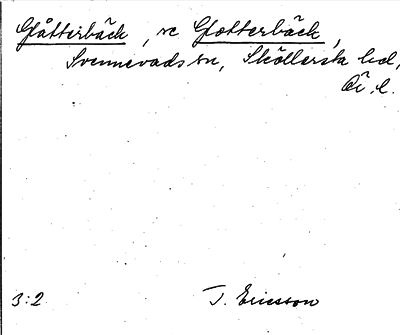 Glåtterbäck, se Glotterbäck,
Svennevads sn, Sköllersta hd,
Ö. l.
3:2 T. Ericsson